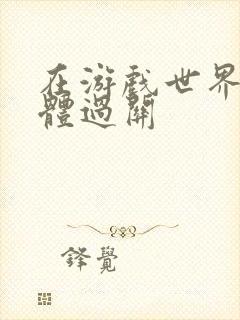 在游戲世界
體過關
鋒覺